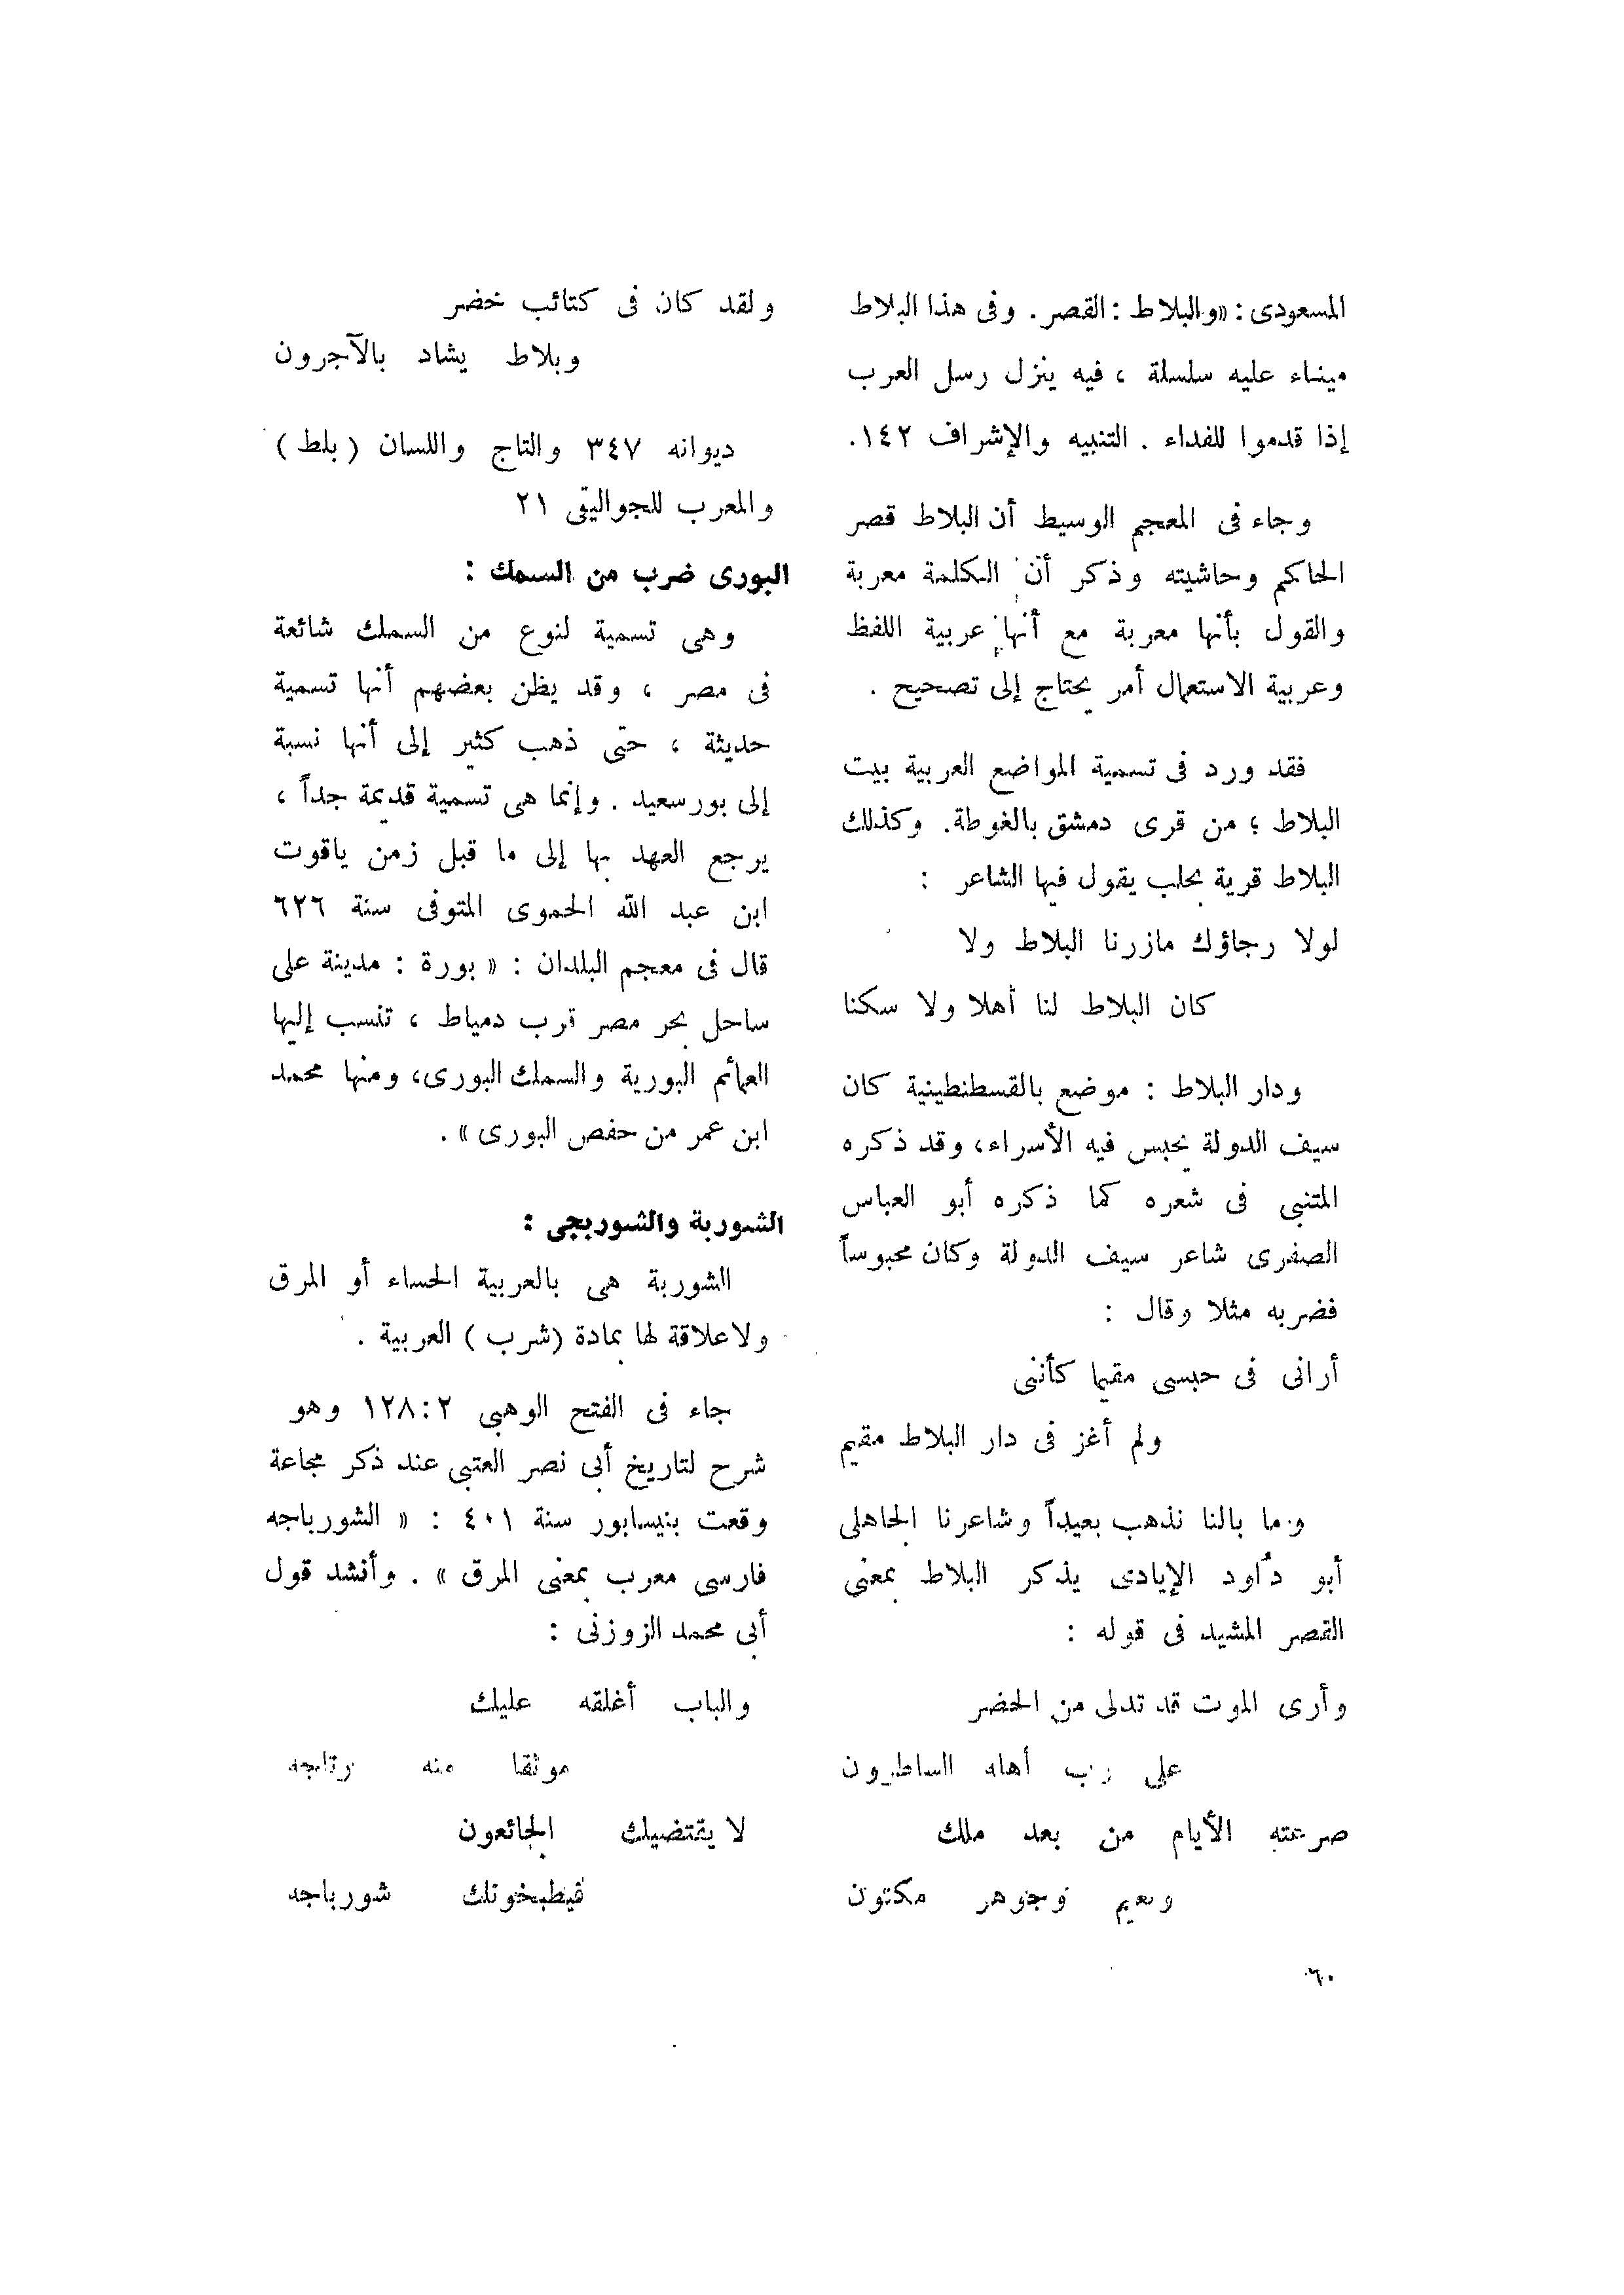 المسعودى : «والبلاط : القصر . وفى هذا البلاط
ميناء عليه سلسلة ، فيه ينزل رسل العرب
إذا قدموا للفداء . التنبيه والإشراف ١٤٢.
وجاء فى المعجم الوسيط أن البلاط قصر
الحاكم وحاشيته وذكر أن الكلمة معربة
والقول بأنها معربة مع أنها عربية اللفظ
وعربية الاستعمال أمر يحتاج إلى تصحيح .
فقد ورد فى تسمية المواضع العربية بيت
البلاط ؛ من قرى دمشق بالغوطة . وكذلك
البلاط قرية بحلب يقول فيها الشاعر :
لولا رجاؤك مازرنا البلاط ولا
كان البلاط لنا أهلا ولا سكنا
ودار البلاط : موضع بالقسطنطينية كان
سيف الدولة يحبس فيه الأسراء ، وقد ذكره
المتنبى فى شعره كما ذكره أبو العباس
الصفرى شاعر سيف الدولة وكان محبوساً
فضربه مثلا وقال :
أرانى فى حبسى مقيما كأننى
ولم أغز فى دار البلاط مقيم
وما بالنا نذهب بعيداً وشاعرنا الجاهلى
أبو دُاود الإيادى يذكر البلاط بمعنى
القصر المشيد فى قوله :
وأرى الموت قد تدلى من الحضر
على رب أهله الساطرون
صرعته الأيام من بعد ملك
ونعيم وجوهر مكنون
ولقد كان فى كتائب خضر
وبلاط يشاد بالآجرون
ديوانه ٣٤٧ والتاج واللسان ( بلط )
والمعرب للجواليقى ٢١
البورى ضرب من السمك :
وهى تسمية لنوع من السمك شائعة
فى مصر ، وقد يظن بعضهم أنها تسمية
حديثة ، حتى ذهب كثير إلى أنها نسبة
إلى بورسعيد . وإنما هى تسمية قديمة جداً ،
يرجع العهد بها إلى ما قبل زمن ياقوت
ابن عبد الله الحموى المتوفى سنة ٦٢٦
قال فى معجم البلدان : « بورة : مدينة على
ساحل بحر مصر قرب دمياط ، تنسب إليها
العمائم البورية والسمك البورى، ومنها محمد
ابن عمر من حفص البورى » .
الشوربة والشوربجى :
الشوربة هى بالعربية الحساء أو المرق
ولاعلاقة لها بمادة (شرب ) العربية .
جاء فى الفتح الوهبى ١٢٨:٢ وهو
شرح لتاريخ أبى نصر العتبى عند ذكر مجاعة
وقعت بنيسابور سنة ٤٠١ : « الشورباجه
فارسى معرب بمعنى المرق » . وأنشد قول
أبى محمد الزوزنى :
والباب أغلقه عليك
موثقا منه رتاجه
لا يقتضيك الجائعون
فيطبخونك شورباجه
٦٠